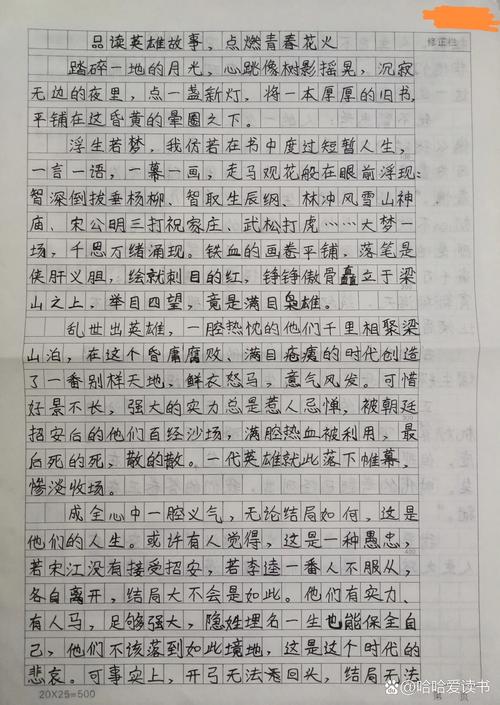 品读英雄故事，点燃青春花火
修正栏
踏碎一地的月光，心跳像树影摇晃，沉寂
无边的夜里，点一盏新灯，将一本厚厚的旧书，
平铺在这昏黄的晕圈之下。
浮生若梦，我仿若在书中度过短暂人生，
一言一语，一幕一画，走马观花般在眼前浮现：
智深倒拔垂杨柳、智取生辰纲、林冲风雪山神
庙、宋公明三打祝家庄、武松打虎……大梦一
场，千思万绪涌现。铁血的画卷平铺，落笔是
侠肝义胆，绘就刺目的红，铮铮傲骨矗立于梁
山之上，举目四望，竟是满目枭雄。
乱世出英雄，一腔热忱的他们千里相聚梁
山泊，在这个昏庸腐败、满目疮痍的时代创造
了一番别样天地，鲜衣怒马，意气风发。可惜
好景不长，强大的实力总是惹人忌惮，被朝廷
招安后的他们百经沙场，满腔热血被利用，最
后死的死，散的散。一代英雄就此落下帷幕，
惨淡收场。
成全心中一腔义气，无论结局如何，这是
他们的人生。或许有人觉得，这是一种愚忠，
若宋江没有接受招安，若李逵一番人不服从，
各自离开，结局大不会是如此。他们有实力、
有人马，足够强大，隐姓埋名一生也能保全自
己，他们不该落到如此境地，这是这个时代的
悲哀。可事实上，开弓无法再回头，结局无法
20X25=500
第 页
@哈哈爱读书